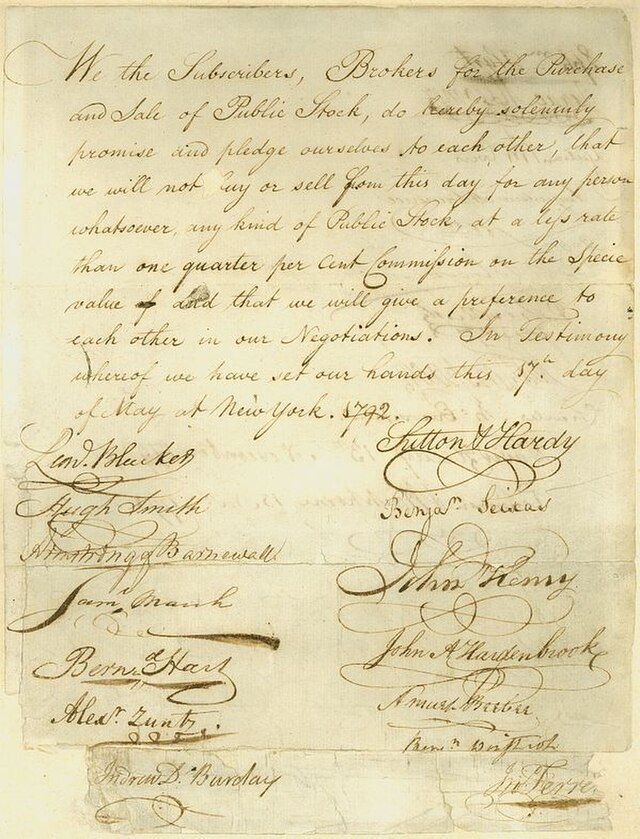 We the Subscribers, Brokers for the Purchase
and Sale of Public Stock, do hereby solemnly
promise and pledge ourselves to each other, that
we will not buy or sell from this day for any person
whatsoever, any kind of Public Stock, at a less rate
than one quarter per Cent Commission on the Specie
value of and that we will give a preference to
each other in our Negotiations. In Testimony
whereof we have set our hands this 17th day
of May at New York. 1792.
Leond. Bleecker
Hugh Smith
Armstrong & Barnewall
Saml. March
Bernd. Hart
Alexr. Zuntz.
Andrew D. Barclay
Sutton & Hardy
Benjan. Seixas
John Henry
John A Hardenbrook
Amurt Beebee
Benn.
Jno Ferre